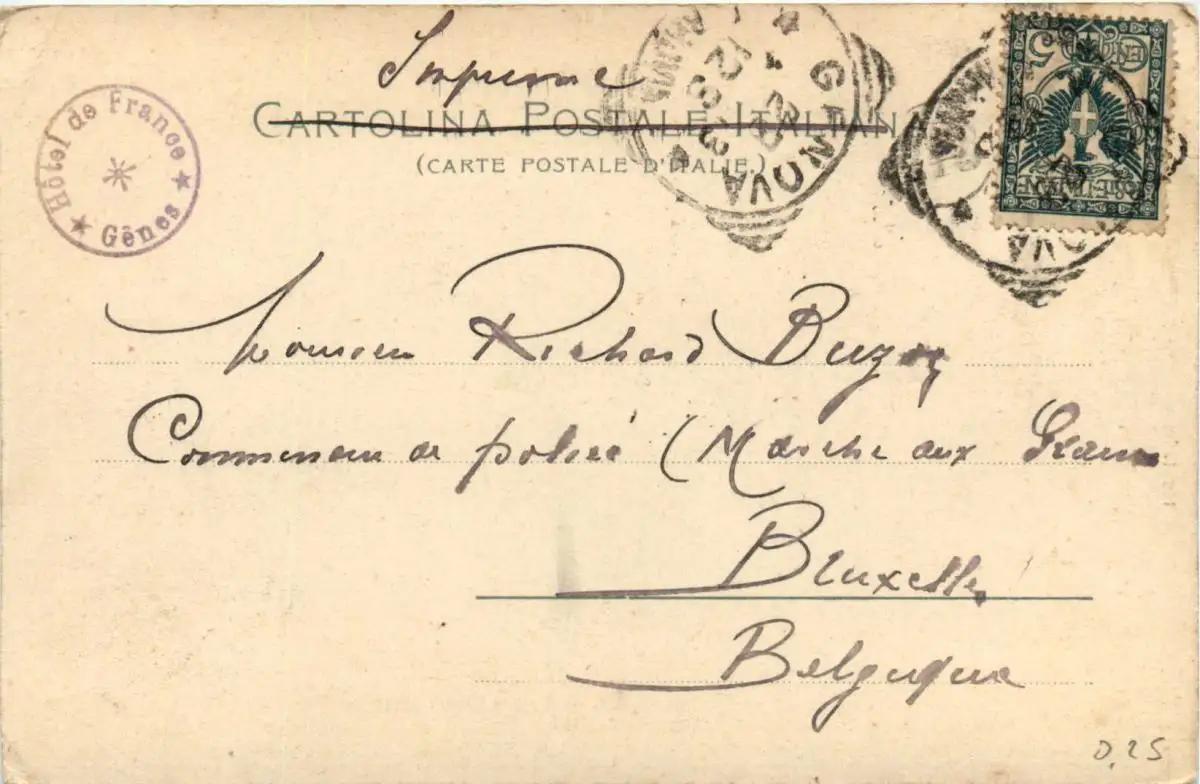 Imprimé
CARTOLINA POSTALE ITALIANA
(CARTE POSTALE D'ITALIE.)
Hôtel de France
Gênes
GENOVA
5
Monsieur Richard
Commissaire de police (Marché aux Grains
Bruxelles
Belgique
0,25